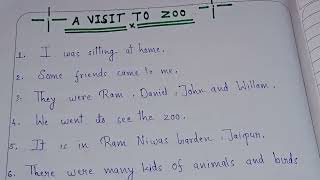 A VISIT TO ZOO
1. I was sitting at home.
2. Some friends came to me.
3. They were Ram, Daniel, John and Willam.
4. We went to see the zoo.
5. It is in Ram Niwas Garden, Jaipur.
6. There were many kids of animals and birds